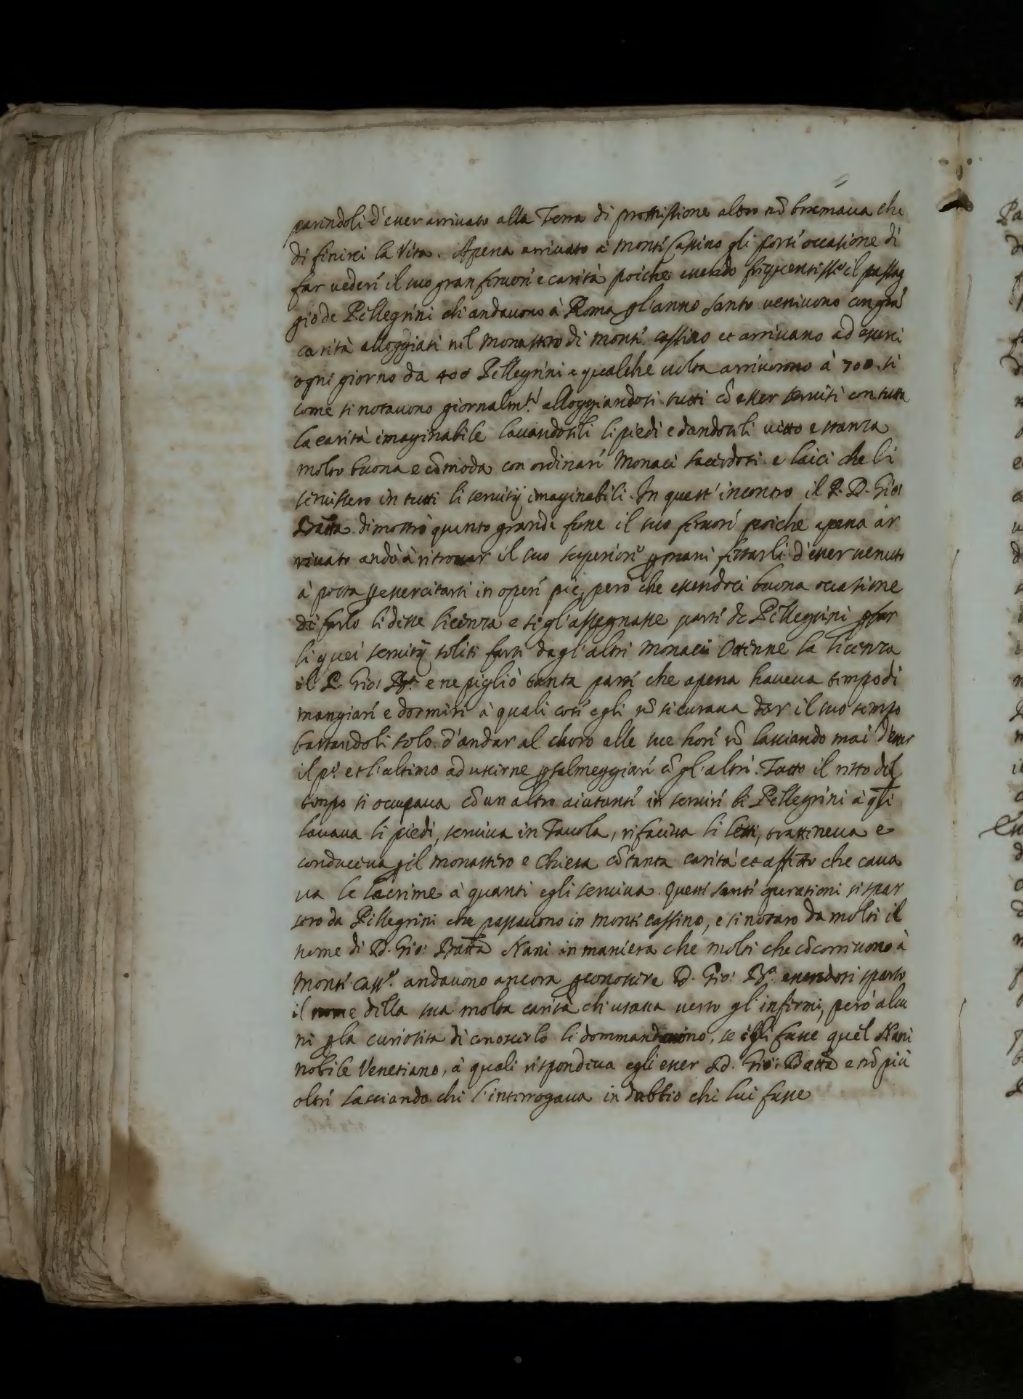 parendoli d'esser arrivato alla Terra di promissione altro nõ bramava che
di finirci la Vita. Apena arrivato à Monte Cassino gli porse occasione di
far vedere il suo gran fervore e carità poiche essendo frequentiss.º il passag
gio de Pellegrini che andavono à Roma gl'anno santo venivono con grã
carità alloggiati nel Monastro di Monte Cassino et arrivano ad esserci
ogni giorno da 400 Pellegrini e qualche volta arrivorono à 700. si
come si notavono giornalm.te alloggiandosi tutti cõ esser serviti con tutta
la carità imaginabile lavandoseli li piedi e dandoseli vitto e stanza
molto buona e cõmoda con ordinari Monaci sacerdoti e laici che li
servissero in tutti li servitij imaginabili. In quest'incontro il P. D. Gio:
Batta dimostrò quanto grande fusse il suo fervore poiche apena ar
rivato andò à ritrovar il suo superiore ꝑ manifestarli d'esser venuto
à posta ꝑ essercitarsi in opere pie, però che essendoci buona occasione
di farlo li desse licenza e se gl'assegnasse parte de Pellegrini ꝑ far
li quei servitij soliti farsi dagl'altri Monaci Ottenne la licenza
il P. Gio: Bta e ne pigliò tanta parte che apena haveva tempo di
mangiare e dormire à quali cose egli nõ si curava dar il suo tempo
bastandoli solo d'andar al choro alle sue hore nõ lasciando mai d'esser
il p.º et l'ultimo ad uscirne ꝑ salmeggiare cõ gl'altri. Tutto il resto del
tempo si occupava cõ un altro aiutante in servire li Pellegrini à q̃li
lavava li piedi, serviva in Tavola, rifaceva li letti, trattineva e
conduceva ꝑ il monastero e chiesa cõ tanta carità et affetto che cava
va le lacrime à quanti egli serviva. Queste sante operationi si spar
sero da Pellegrini che passavono in Monte Cassino, e si notaro da molti il
nome di D. Gio: Batta Nani in maniera che molti che cõcorrivono à
Monte Cass.º andavono ancora ꝑ conoscere D. Gio: Bta essendosi sparso
il nome della sua molta carità ch'usava verso gl'infermi, però alcu
ni ꝑ la curiosità di conoscerlo li dommandorono, se egli fusse quel Nani
nobile Venetiano, à quali rispondeva egli esser D. Gio: Batta e nõ più
oltre lasciando chi l'interrogava in dubbio chi lui fusse